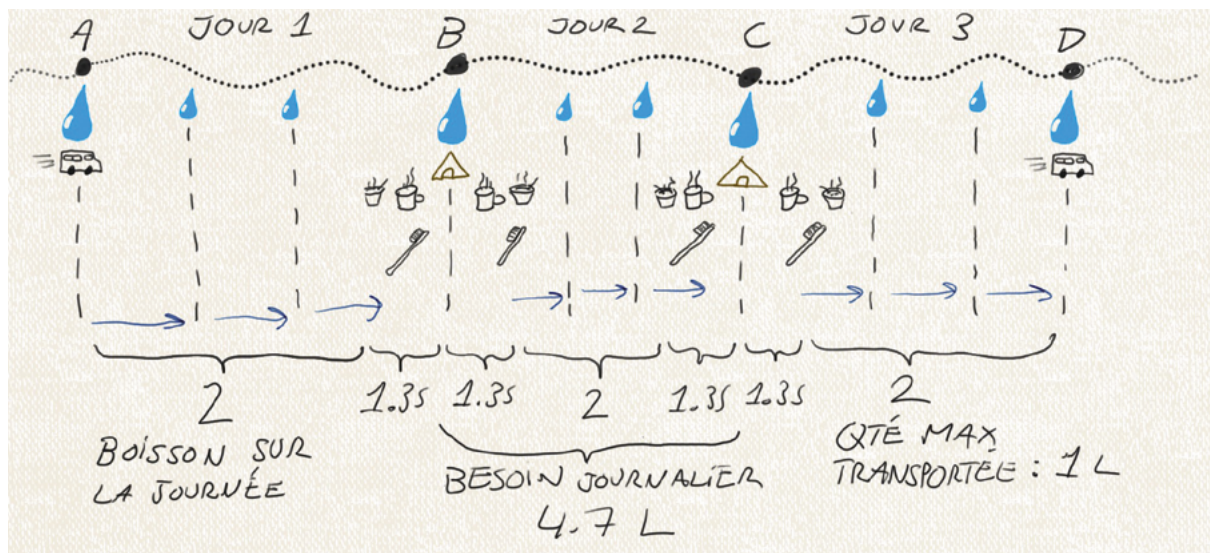 A JOUR 1 B JOUR 2 C JOUR 3 D
2 1.35 1.35 2 1.35 1.35 2
BOISSON SUR
LA JOURNÉE
BESOIN JOURNALIER
4.7 L
QTÉ MAX
TRANSPORTÉE : 1 L